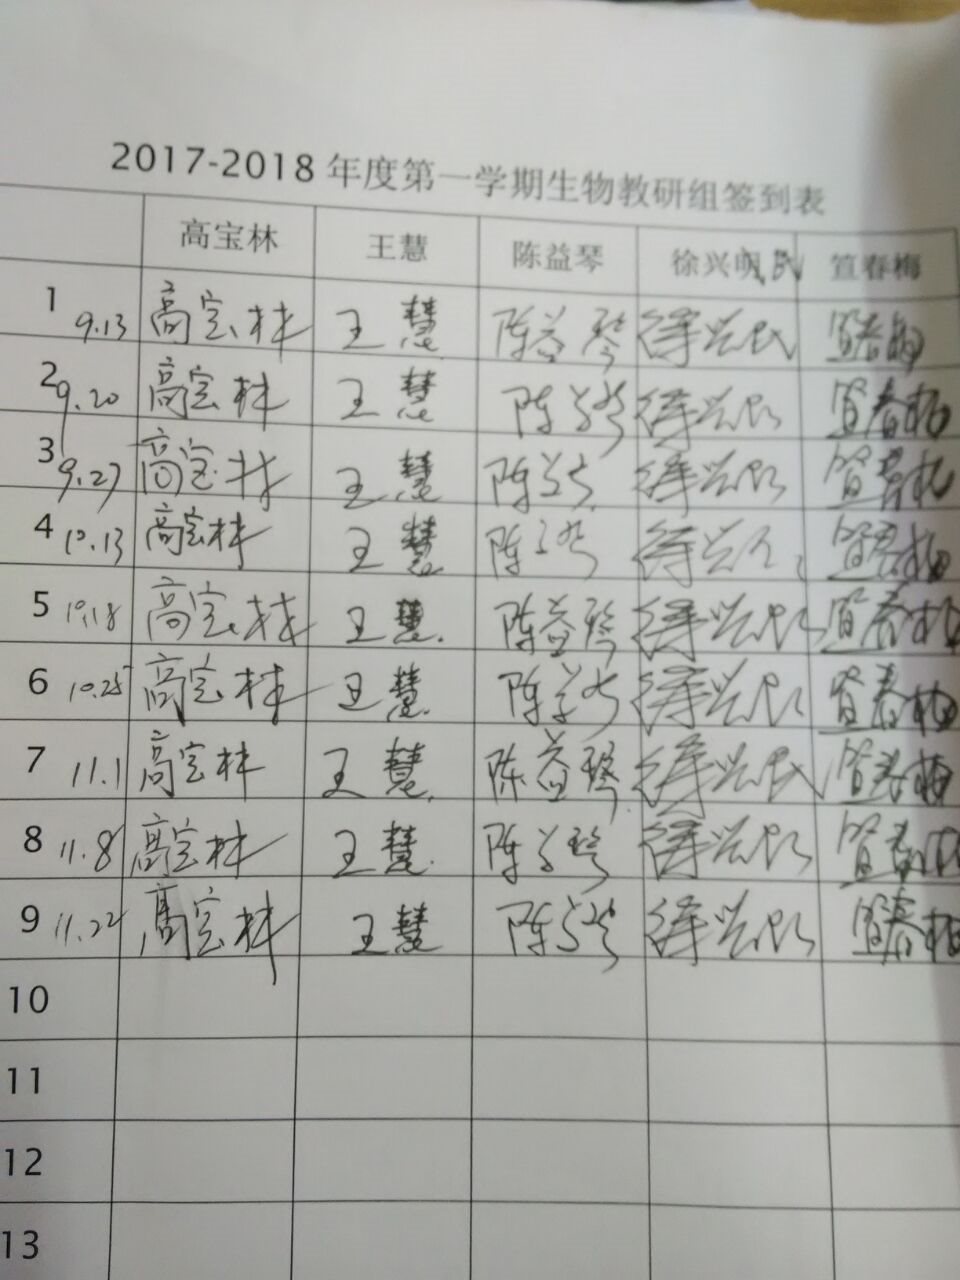 2017-2018 年度第一学期生物教研组签到表
高宝林 王慧 陈益琴 徐兴民 笪春梅
1 9.13 高宝林 王慧 陈益琴 徐兴民 笪春梅
2 9.20 高宝林 王慧 陈益琴 徐兴民 笪春梅
3 9.27 高宝林 王慧 陈益琴 徐兴民 笪春梅
4 10.13 高宝林 王慧 陈益琴 徐兴民 笪春梅
5 10.18 高宝林 王慧 陈益琴 徐兴民 笪春梅
6 10.25 高宝林 王慧 陈益琴 徐兴民 笪春梅
7 11.1 高宝林 王慧 陈益琴 徐兴民 笪春梅
8 11.8 高宝林 王慧 陈益琴 徐兴民 笪春梅
9 11.22 高宝林 王慧 陈益琴 徐兴民 笪春梅
10
11
12
13